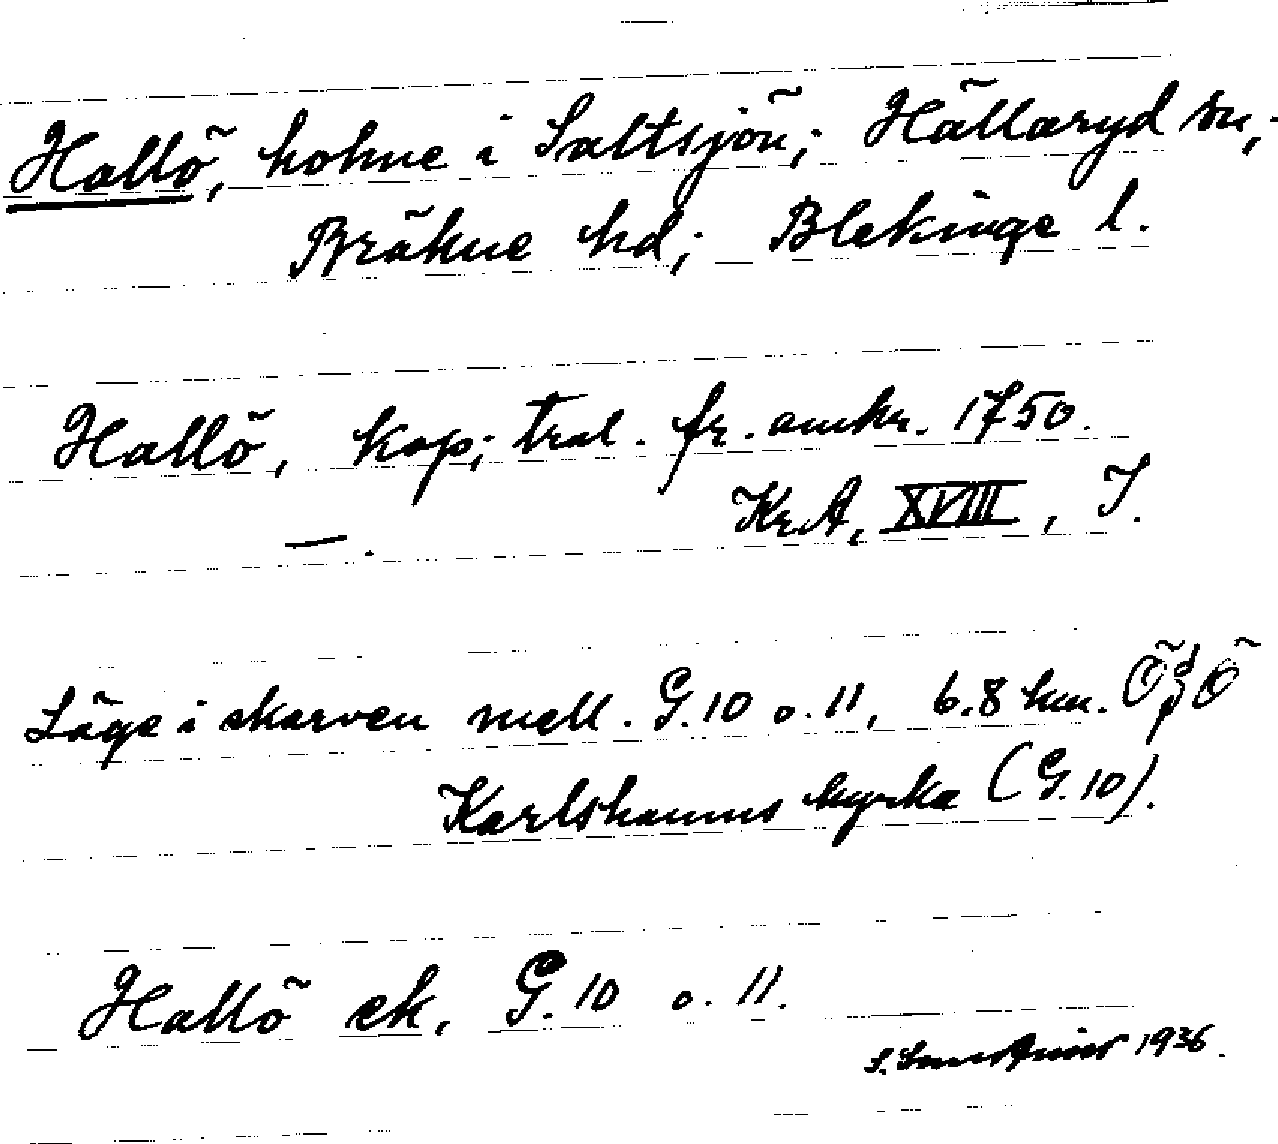 Hallö, holme i Saltsjön; Hällaryd sn,
Bräkne hd; Blekinge l.
Hallö, kop; tral. fr. omkr. 1750.
KrA, XVIII, I.
Läge i skarven mell. G.10 o. 11, 6.8 km. ÖzÖ
Karlshamns kyrka (G.10).
Hallö ek. G.10 o. 11.
1936.